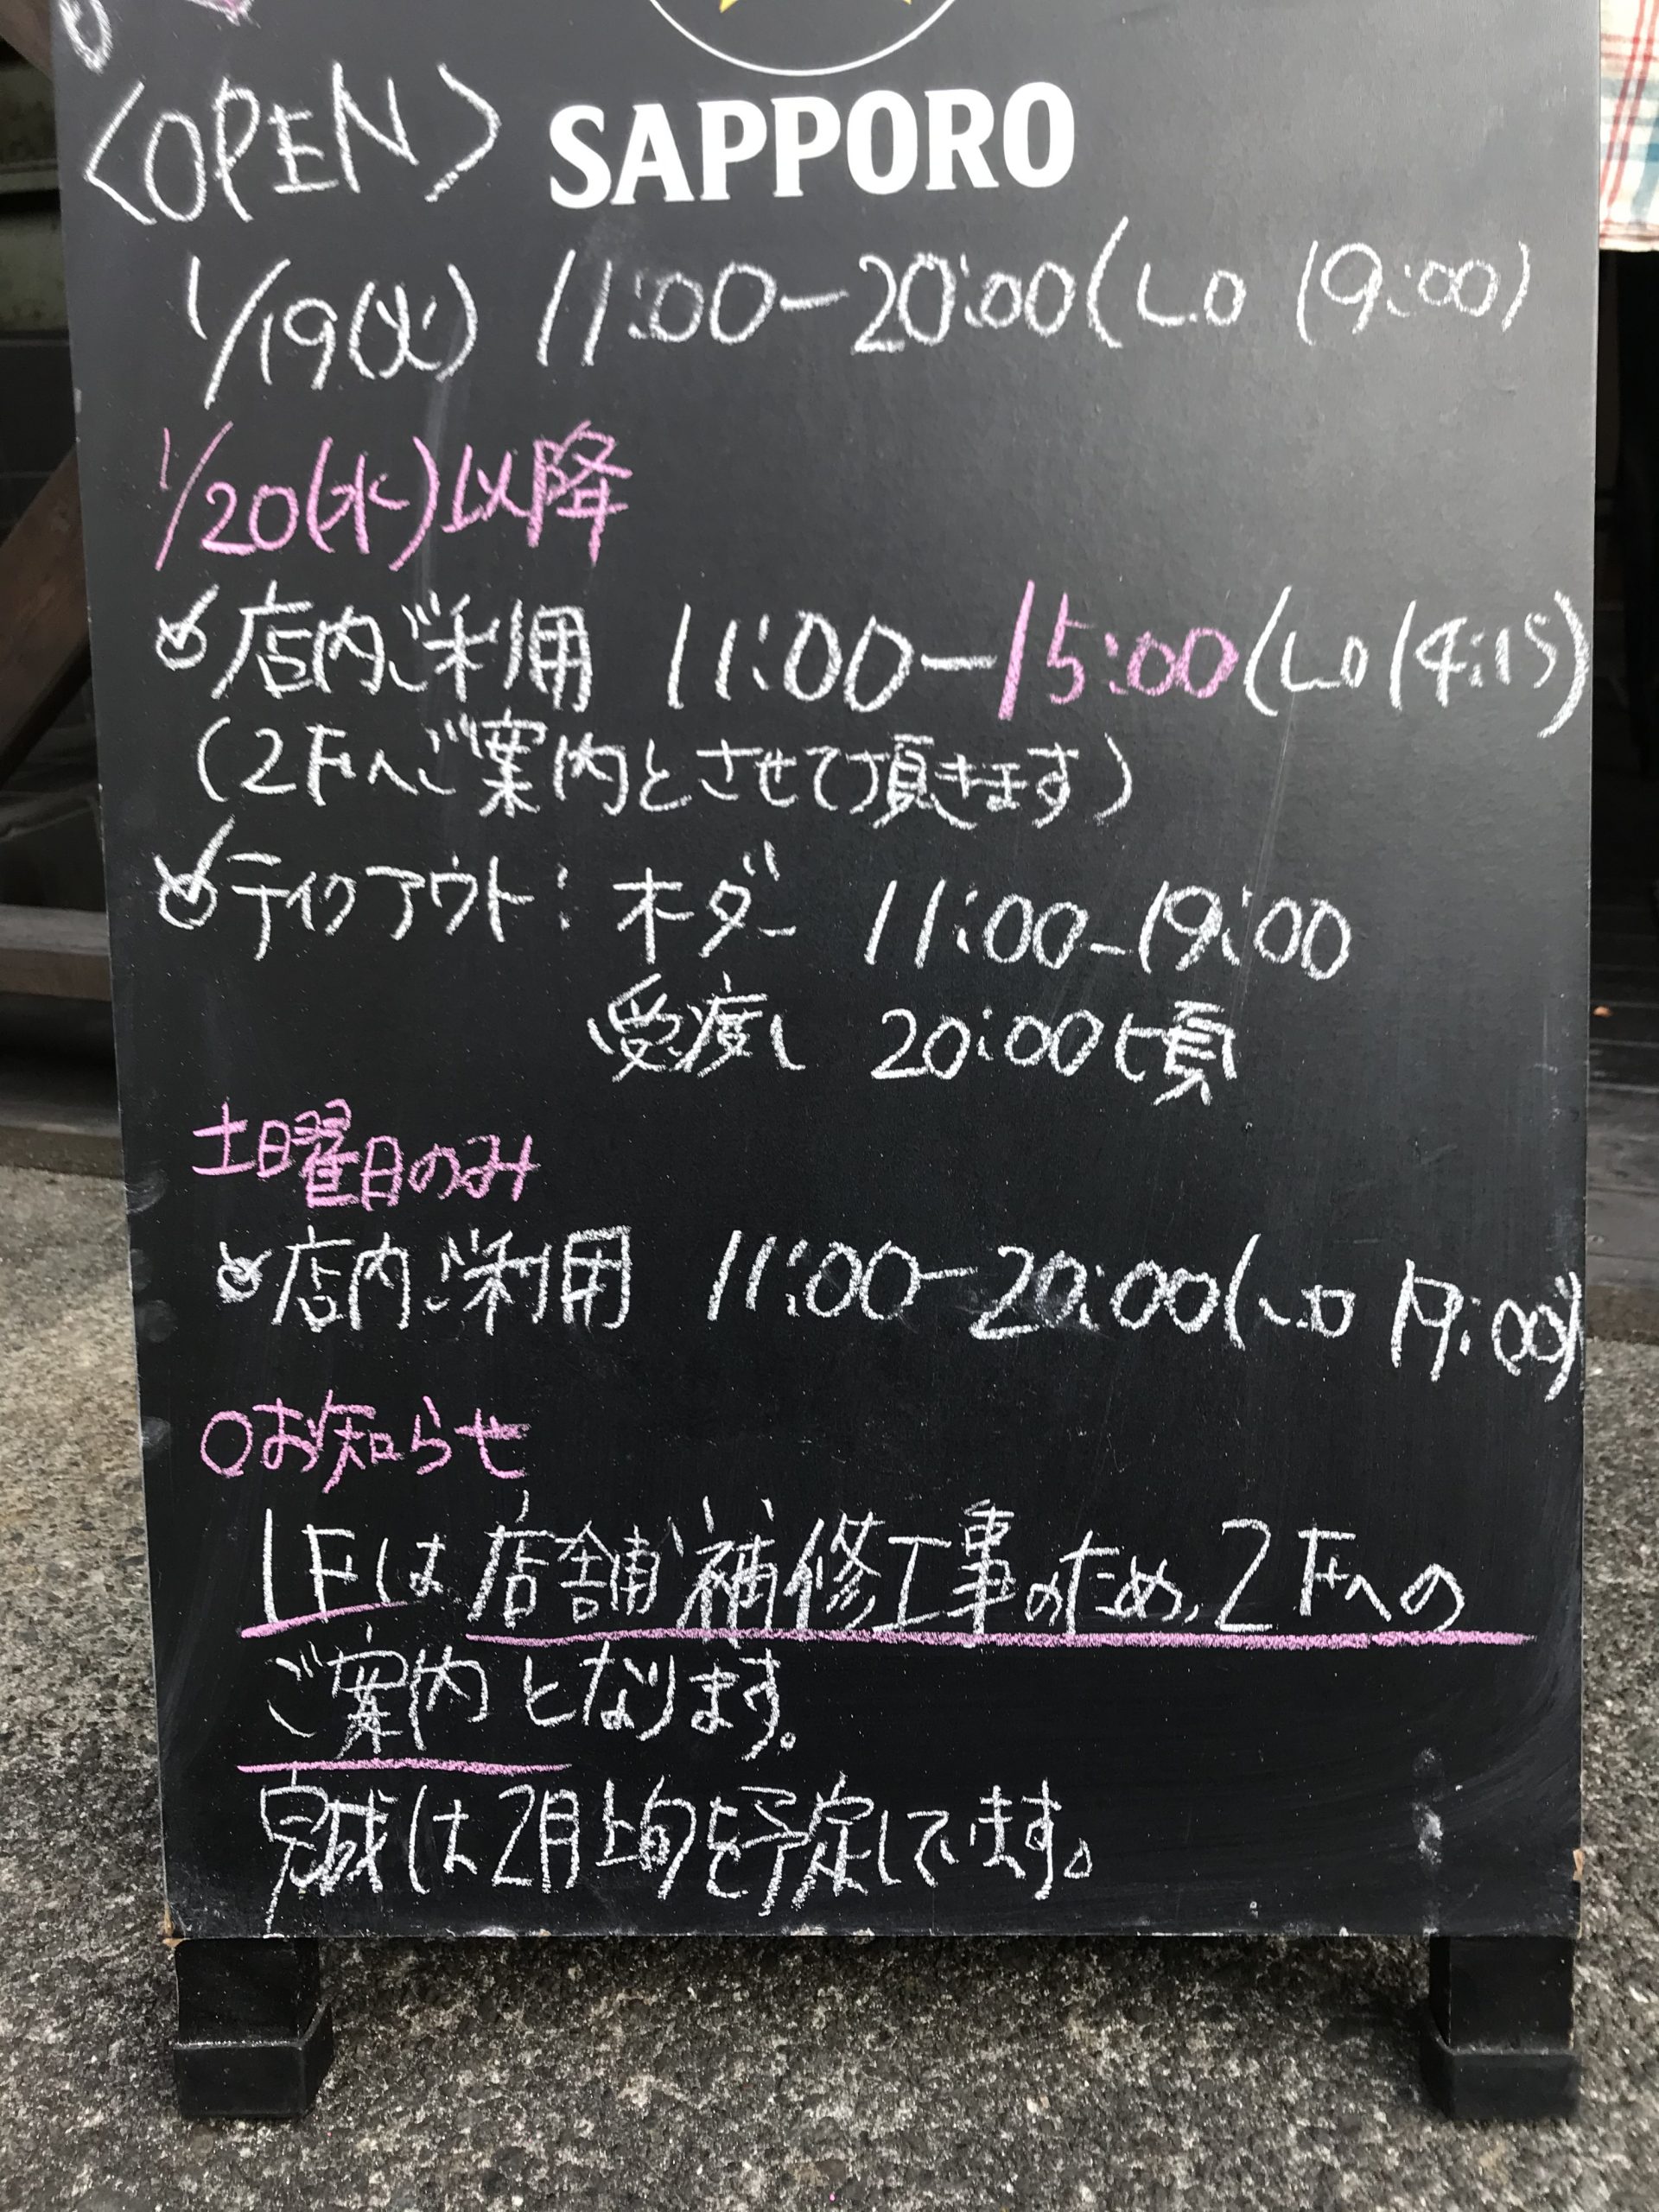 <OPEN>
SAPPORO
1/19(火) 11:00-20:00(L.O 19:00)
1/20(水)以降
店内ご利用 11:00-15:00(L.O 14:15)
(2Fへご案内とさせて頂きます)
テイクアウト: オーダー 11:00-19:00
受渡し 20:00頃
土曜日のみ
店内ご利用 11:00-20:00(L.O 19:00)
○お知らせ
1Fは店舗補修工事のため、2Fへの
ご案内となります。
完成は2月上旬を予定してます。